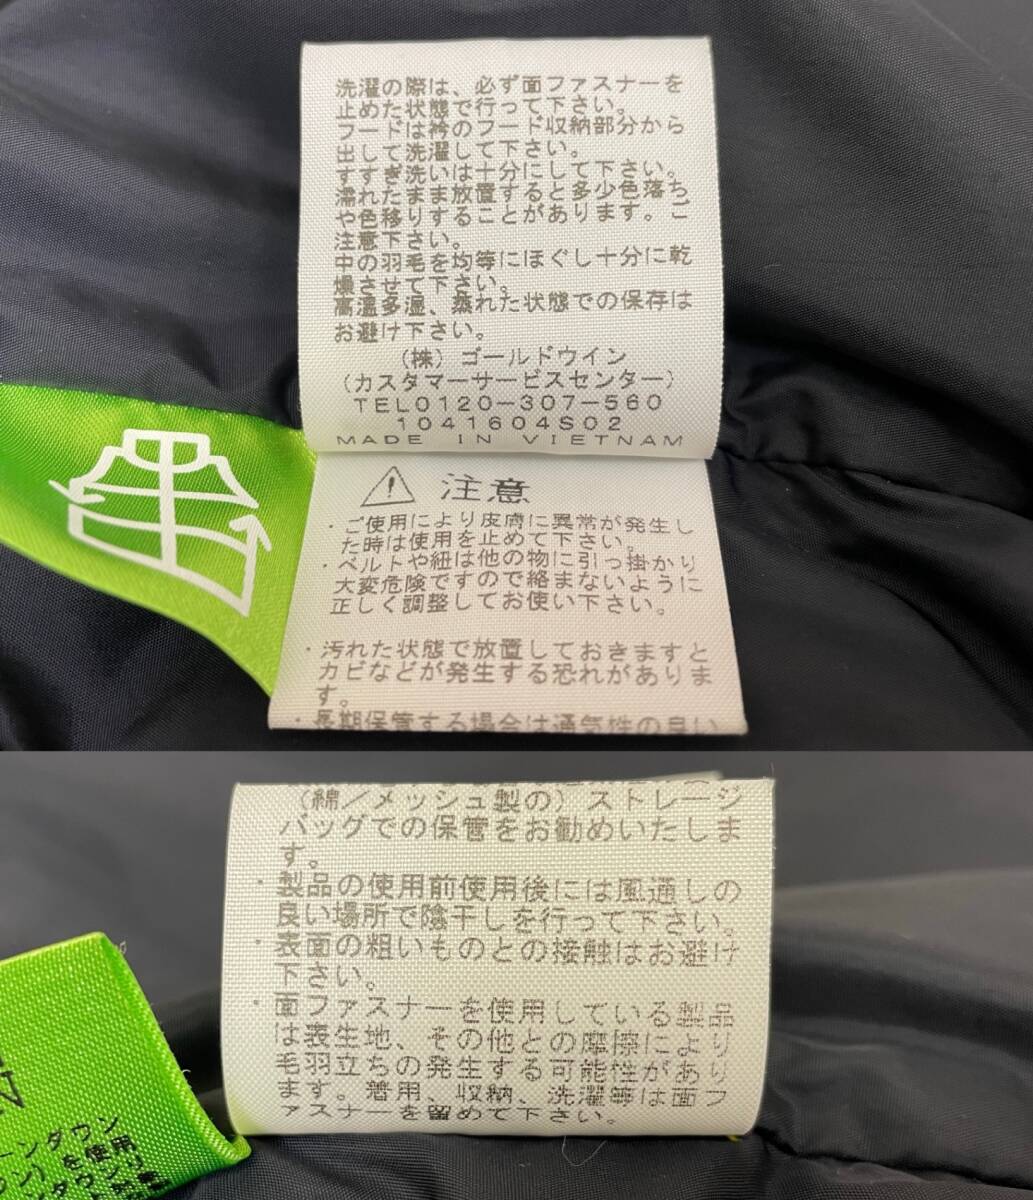 洗濯の際は、必ず面ファスナーを
止めた状態で行って下さい。
フードは衿のフード収納部分から
出して洗濯して下さい。
すすぎ洗いは十分にして下さい。
濡れたまま放置すると多少色落ち
や色移りすることがあります。ご
注意下さい。
中の羽毛を均等にほぐし十分に乾
燥させて下さい。
高温多湿、蒸れた状態での保存は
お避け下さい。
(株)ゴールドウイン
(カスタマーサービスセンター)
TEL0120-307-560
1041604S02
MADE IN VIETNAM
注意
・ご使用により皮膚に異常が発生し
た時は使用を止めて下さい。
・ベルトや紐は他の物に引っ掛かり
大変危険ですので絡まないように
正しく調整してお使い下さい。
・汚れた状態で放置しておきますと
カビなどが発生する恐れがありま
す。
・長期保管する場合は通気性の良い
(綿/メッシュ製の)ストレージ
バッグでの保管をお勧めいたしま
す。
・製品の使用前使用後には風通しの
良い場所で陰干しを行って下さい。
・表面の粗いものとの接触はお避け
下さい。
・面ファスナーを使用している製品
は表生地、その他との摩擦により
毛羽立ちの発生する可能性があり
ます。着用、収納、洗濯等は面フ
ァスナーを留めて下さい。
ーンダウン
ン)を使用